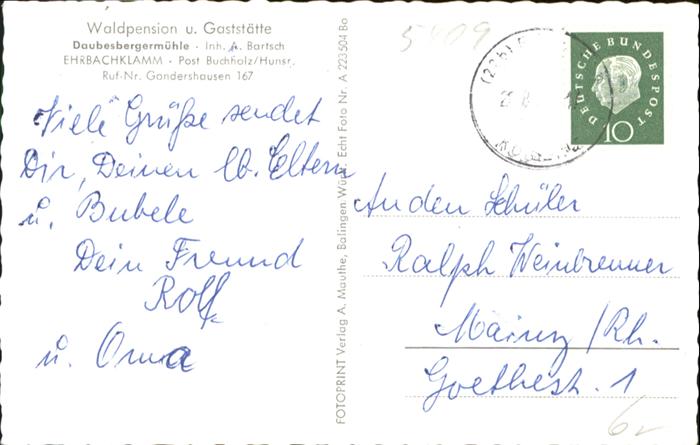 Waldpension u. Gaststätte
Daubesbergermühle · Inh. A. Bartsch
EHRBACHKLAMM · Post Buchholz/Hunsr.
Ruf-Nr. Gondershausen 167
Viele Grüße sendet
Dir, Deinen lb. Eltern
u. Bubele
Dein Freund
Rolf
u. Oma
FOTOPRINT Verlag A. Mauthe, Balingen Württ. Echt Foto Nr. A 223504 Bo
5409
(22b)
DEUTSCHE BUNDESPOST
10
An den Schüler
Ralph Weinbrenner
Mainz/Rh.
Goethestr. 1